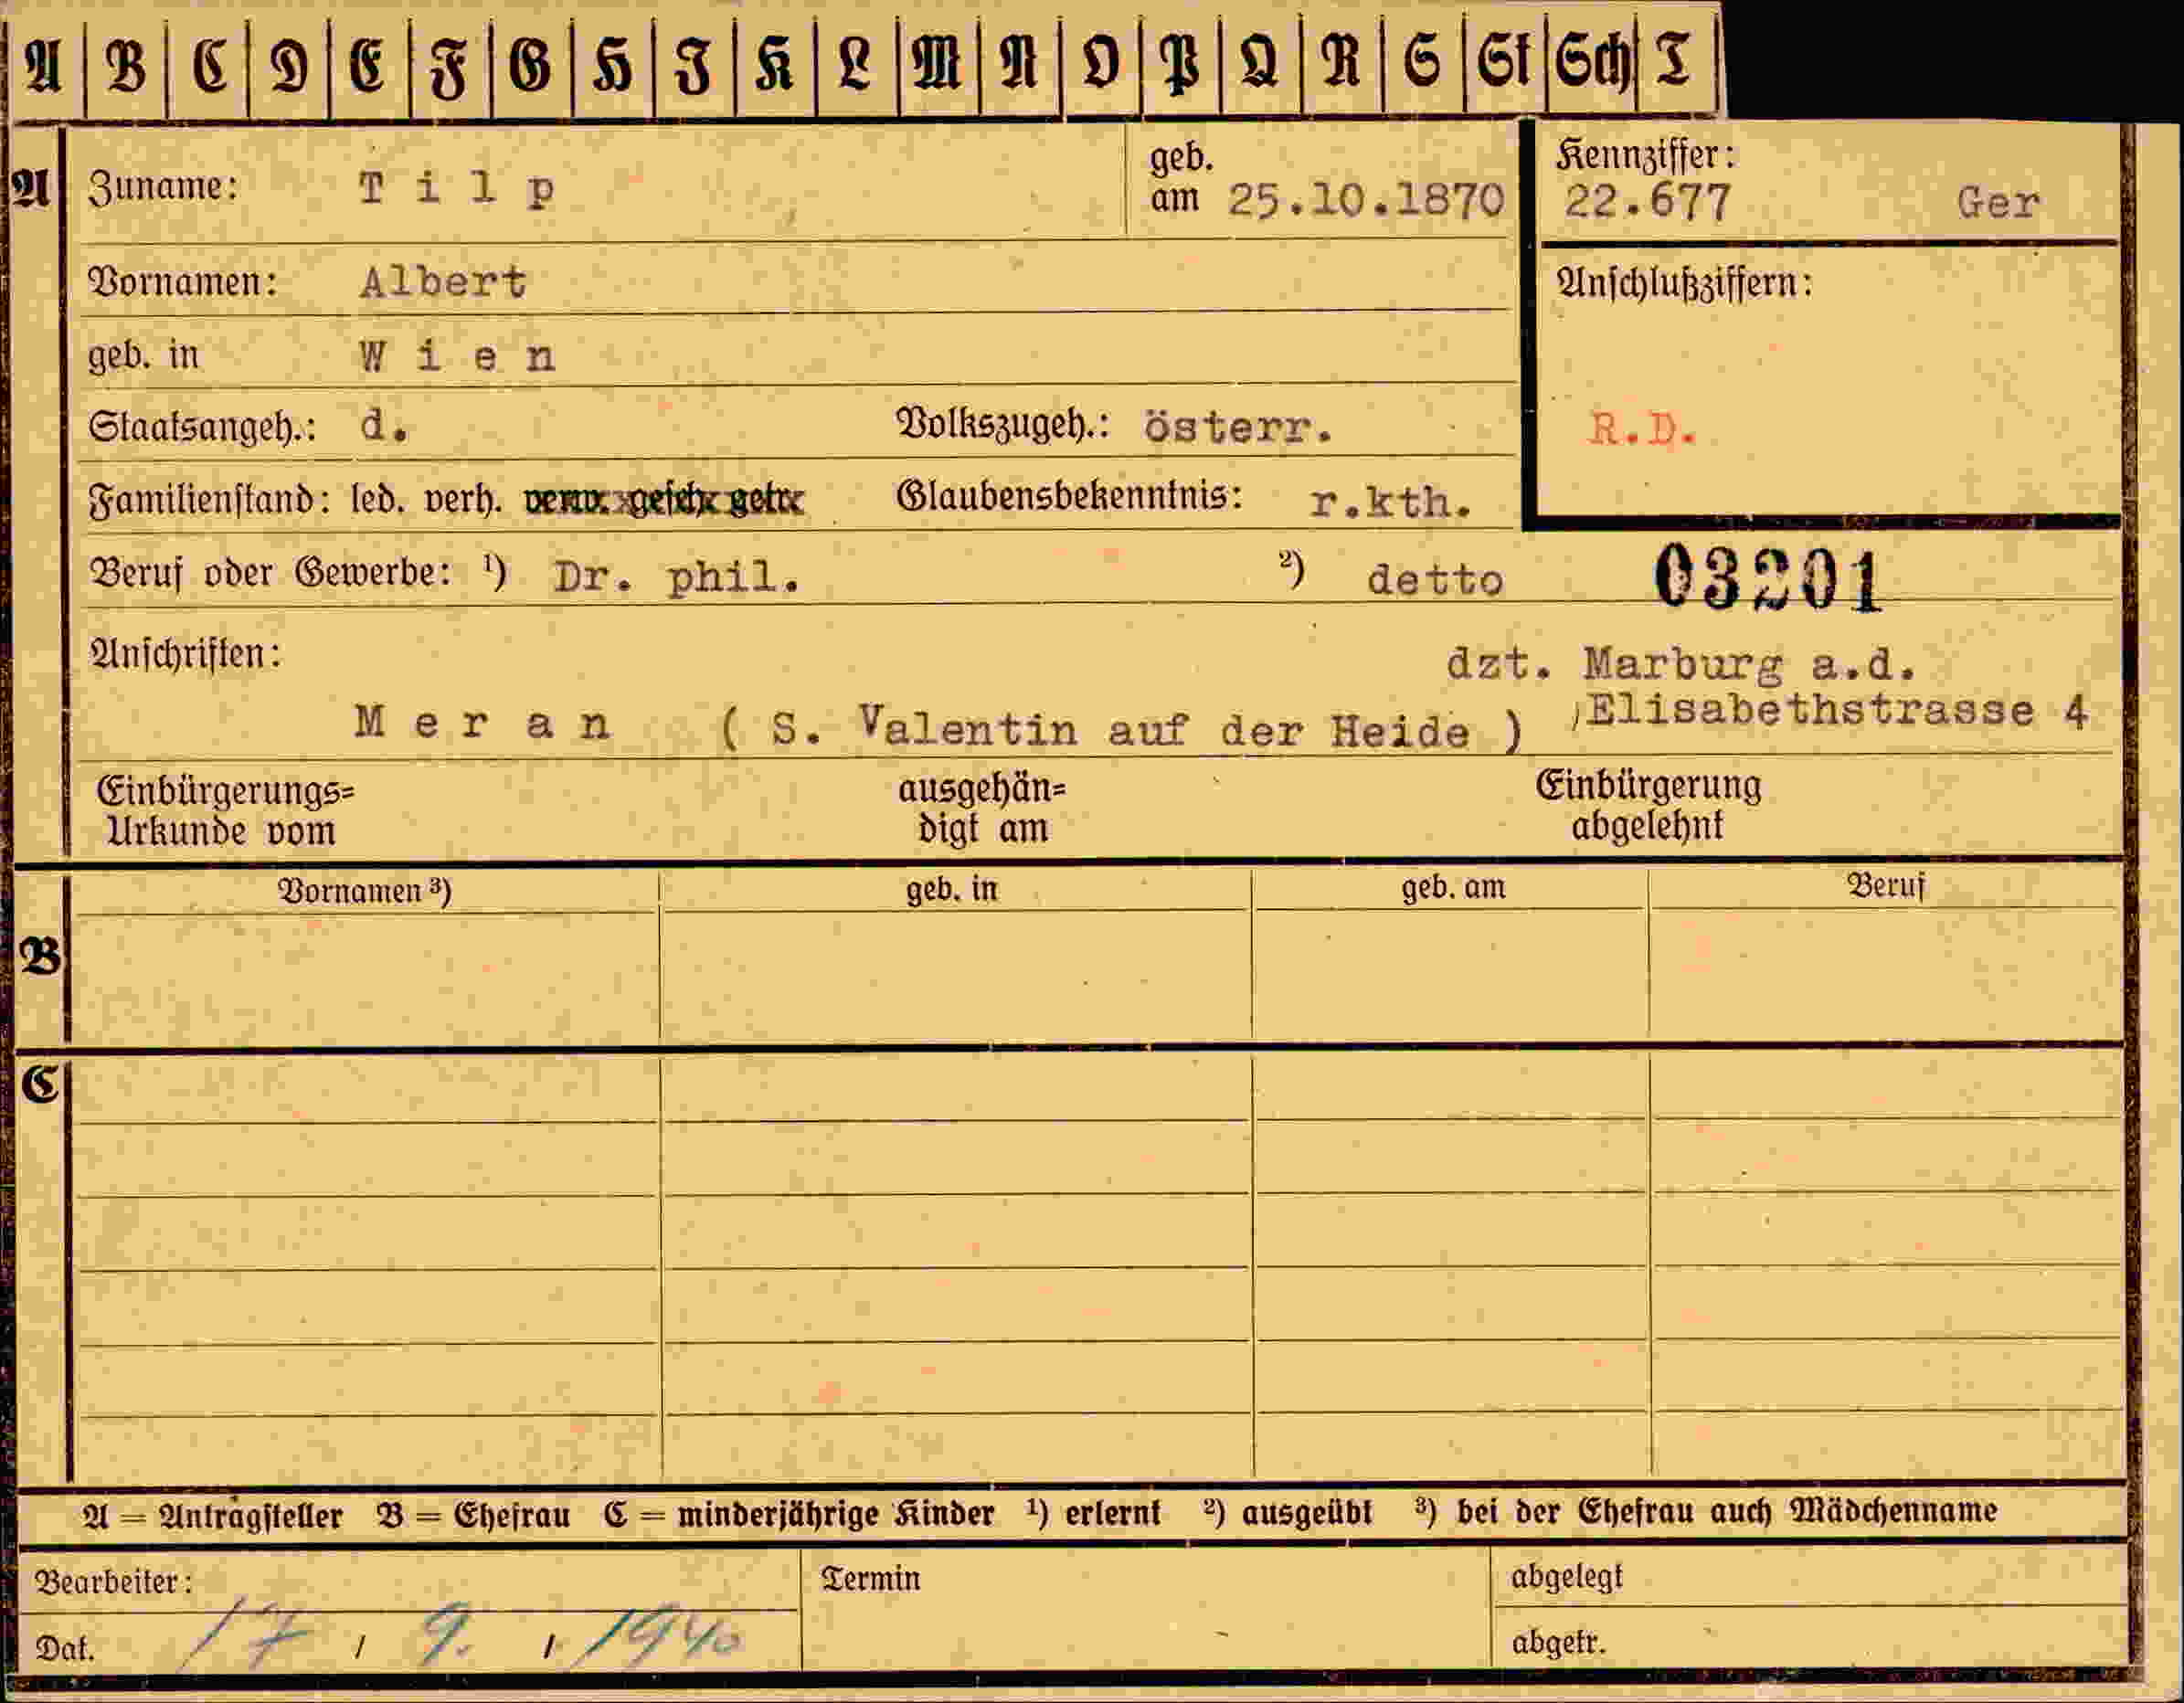 A B C D E F G H I K L M N O P Q R S St Sch T
A Zuname: Tilp geb. am 25.10.1870 Kennziffer: 22.677 Ger
Vornamen: Albert Anschlußziffern:
geb. in Wien
Staatsangeh.: d. Volkszugeh.: österr. R.D.
Familienstand: led. verh. verw. gesch. getr. Glaubensbekenntnis: r.kth.
Beruf oder Gewerbe: ¹) Dr. phil. ²) detto 03201
Anschriften: dzt. Marburg a.d.
Meran ( S. Valentin auf der Heide ) ,Elisabethstrasse 4
Einbürgerungs= ausgehän= Einbürgerung
Urkunde vom digt am abgelehnt
Vornamen ³) geb. in geb. am Beruf
B
C
A = Antragsteller B = Ehefrau C = minderjährige Kinder ¹) erlernt ²) ausgeübt ³) bei der Ehefrau auch Mädchenname
Bearbeiter: Termin abgelegt
Dat. 17 / 9. / 1940 abgetr.